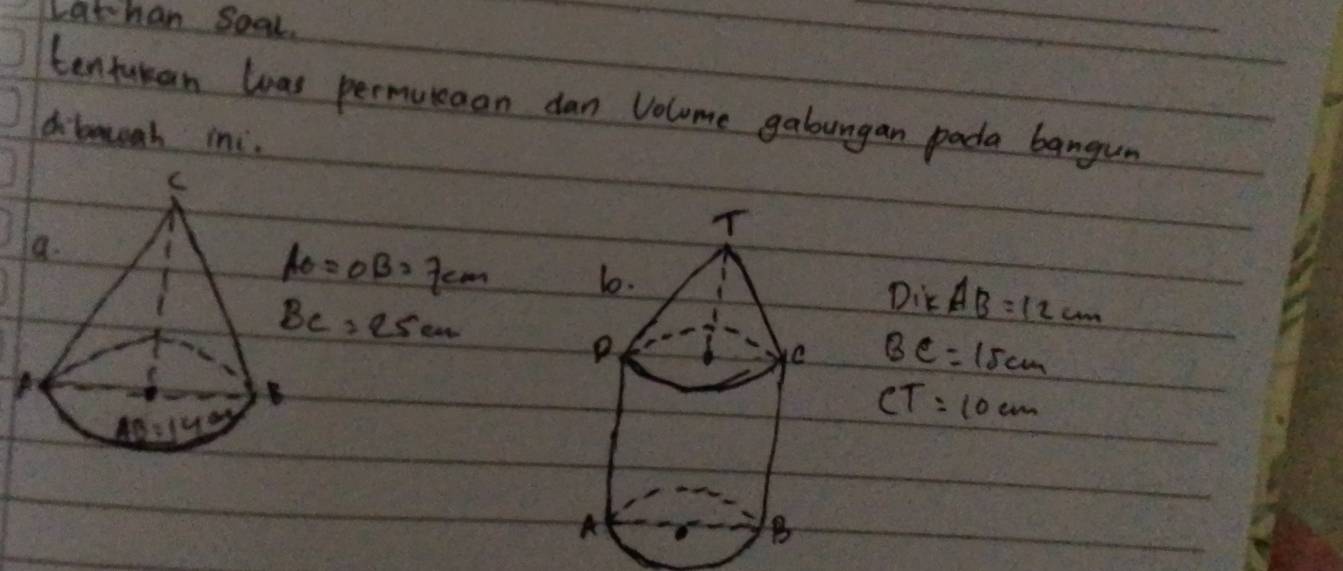 Latihan soal.
tentukan luas permukaan dan Volume gabungan pada bangun
dibawah ini.
C
a.
AO = OB = 7cm
BC = 25cm
A
B
AB = 14 cm
T
b.
D
C
Dik AB = 12 cm
BC = 15cm
CT = 10 cm
A
B